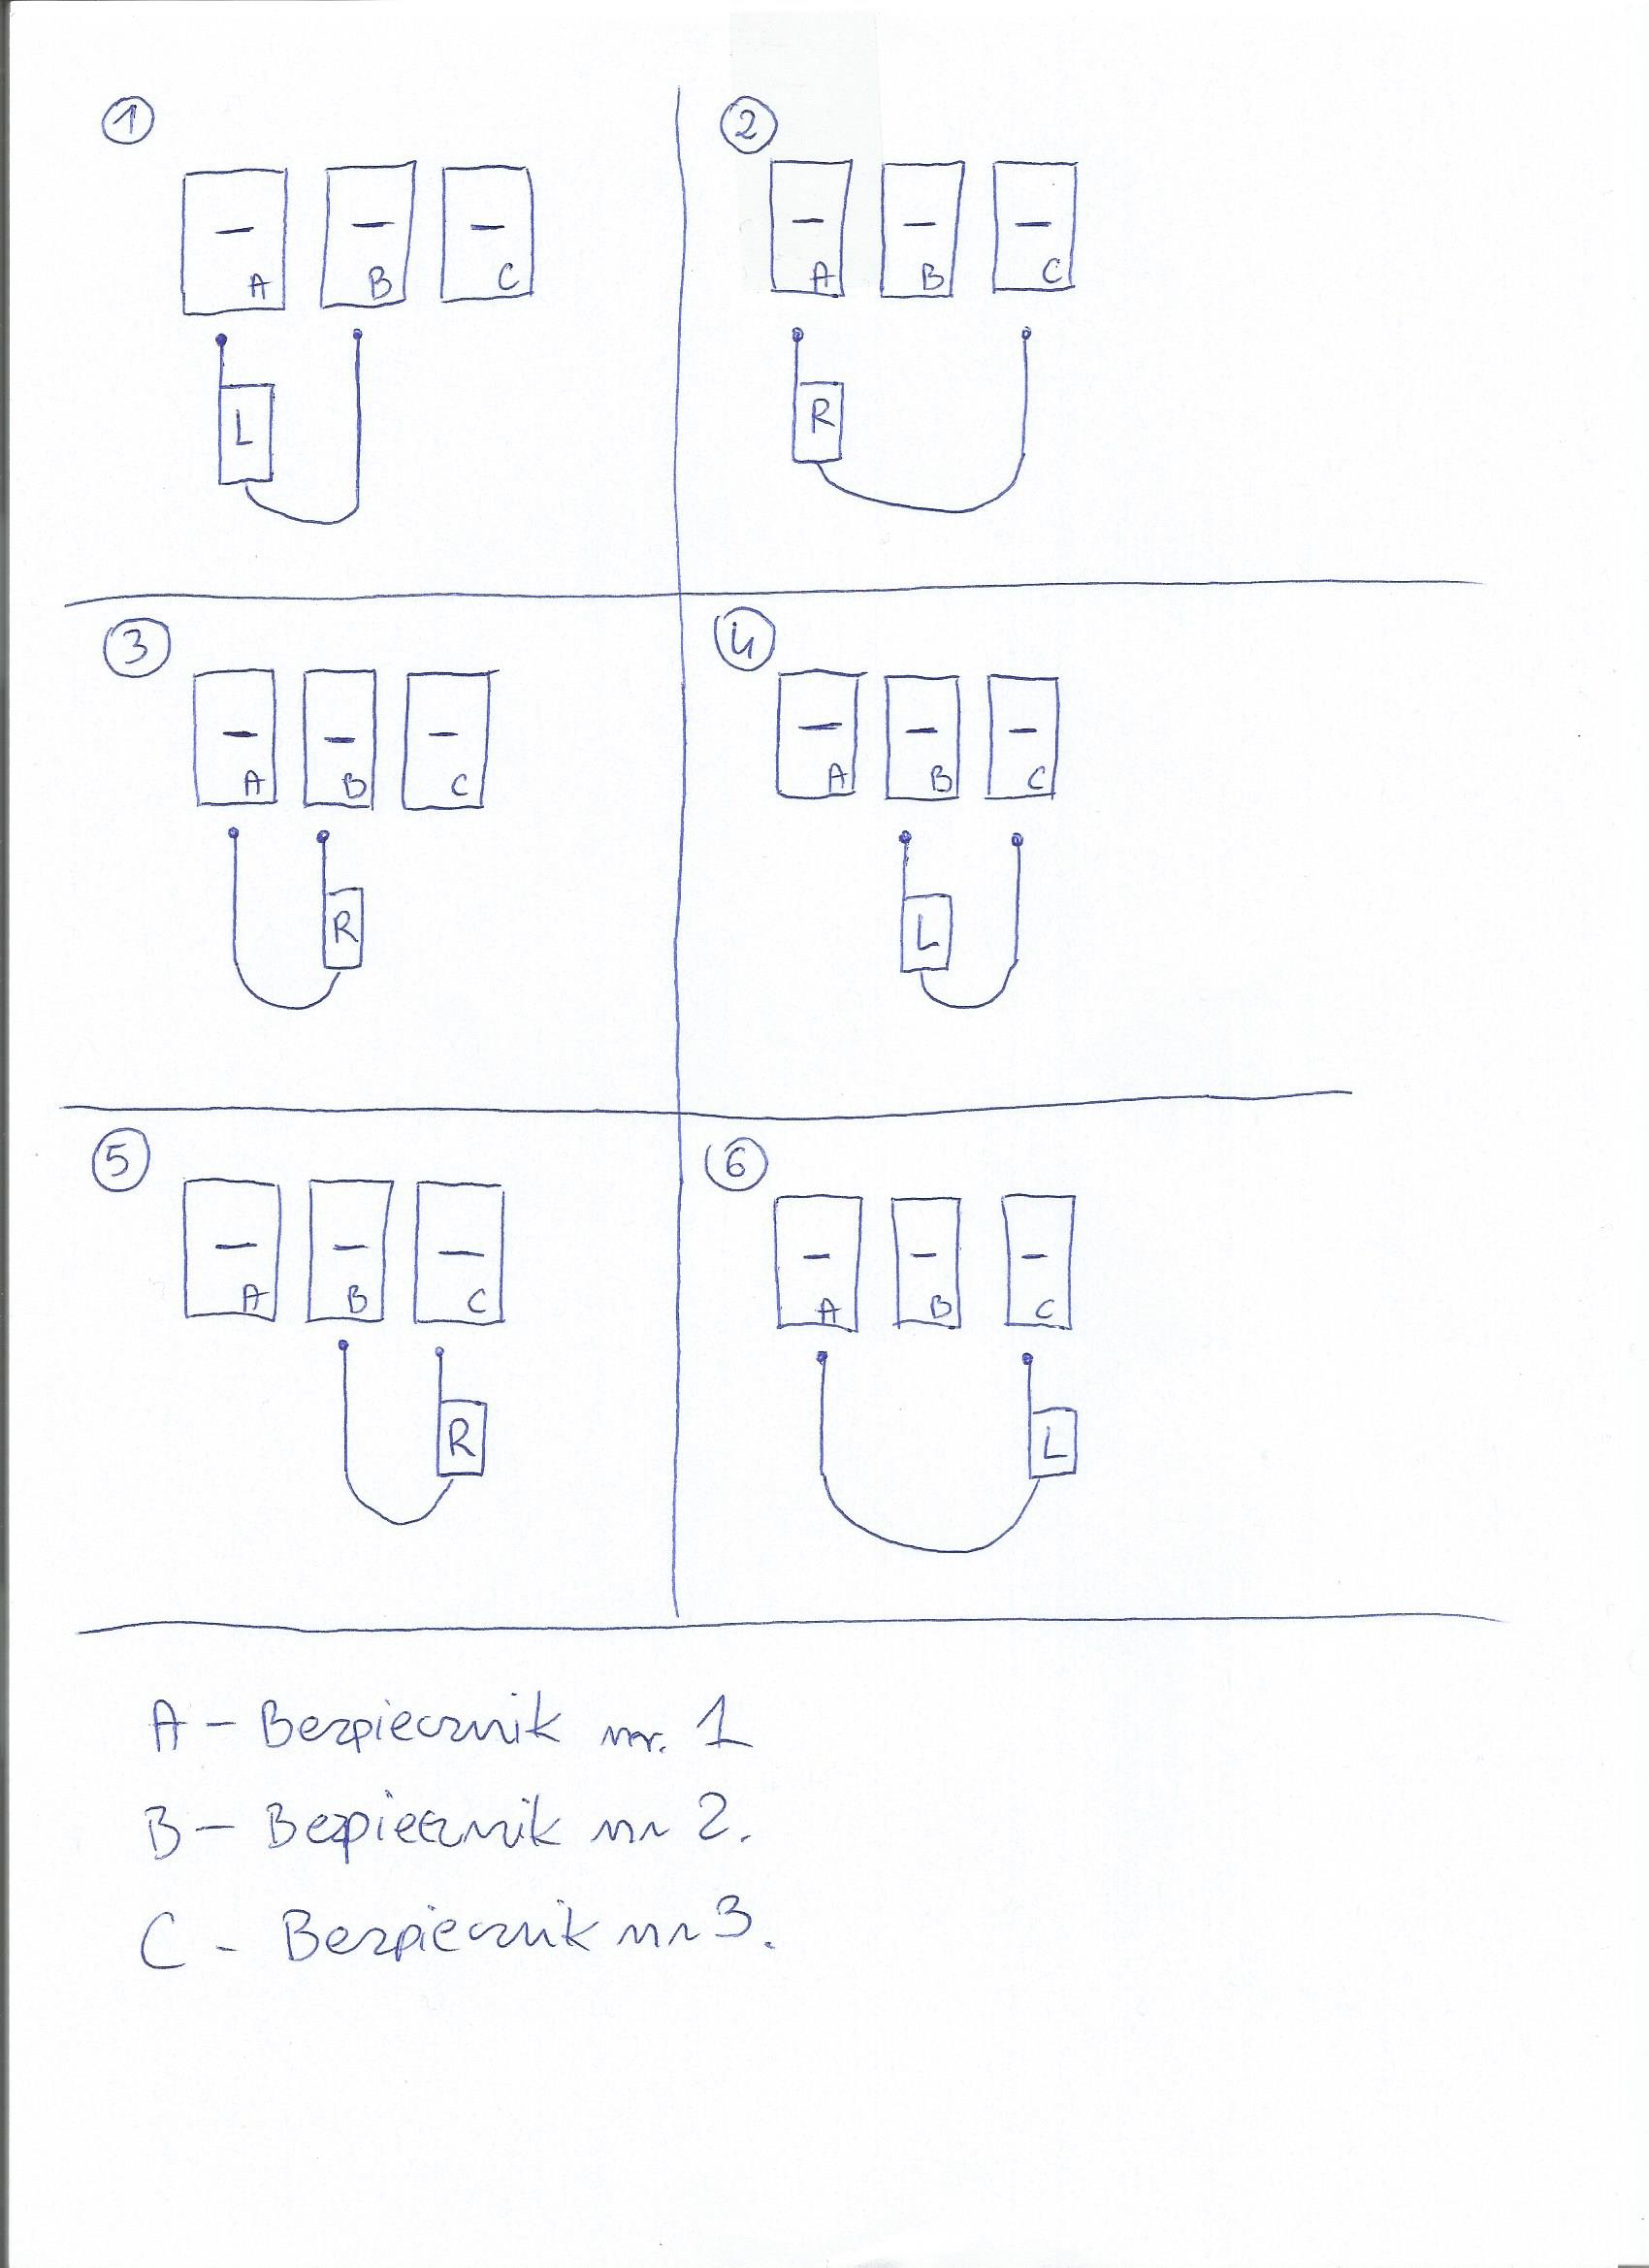 1
A B C
L
2
A B C
R
3
A B C
R
4
A B C
L
5
A B C
R
6
A B C
L
A - Bezpiecznik nr. 1
B - Bezpiecznik nr 2.
C - Bezpiecznik nr 3.